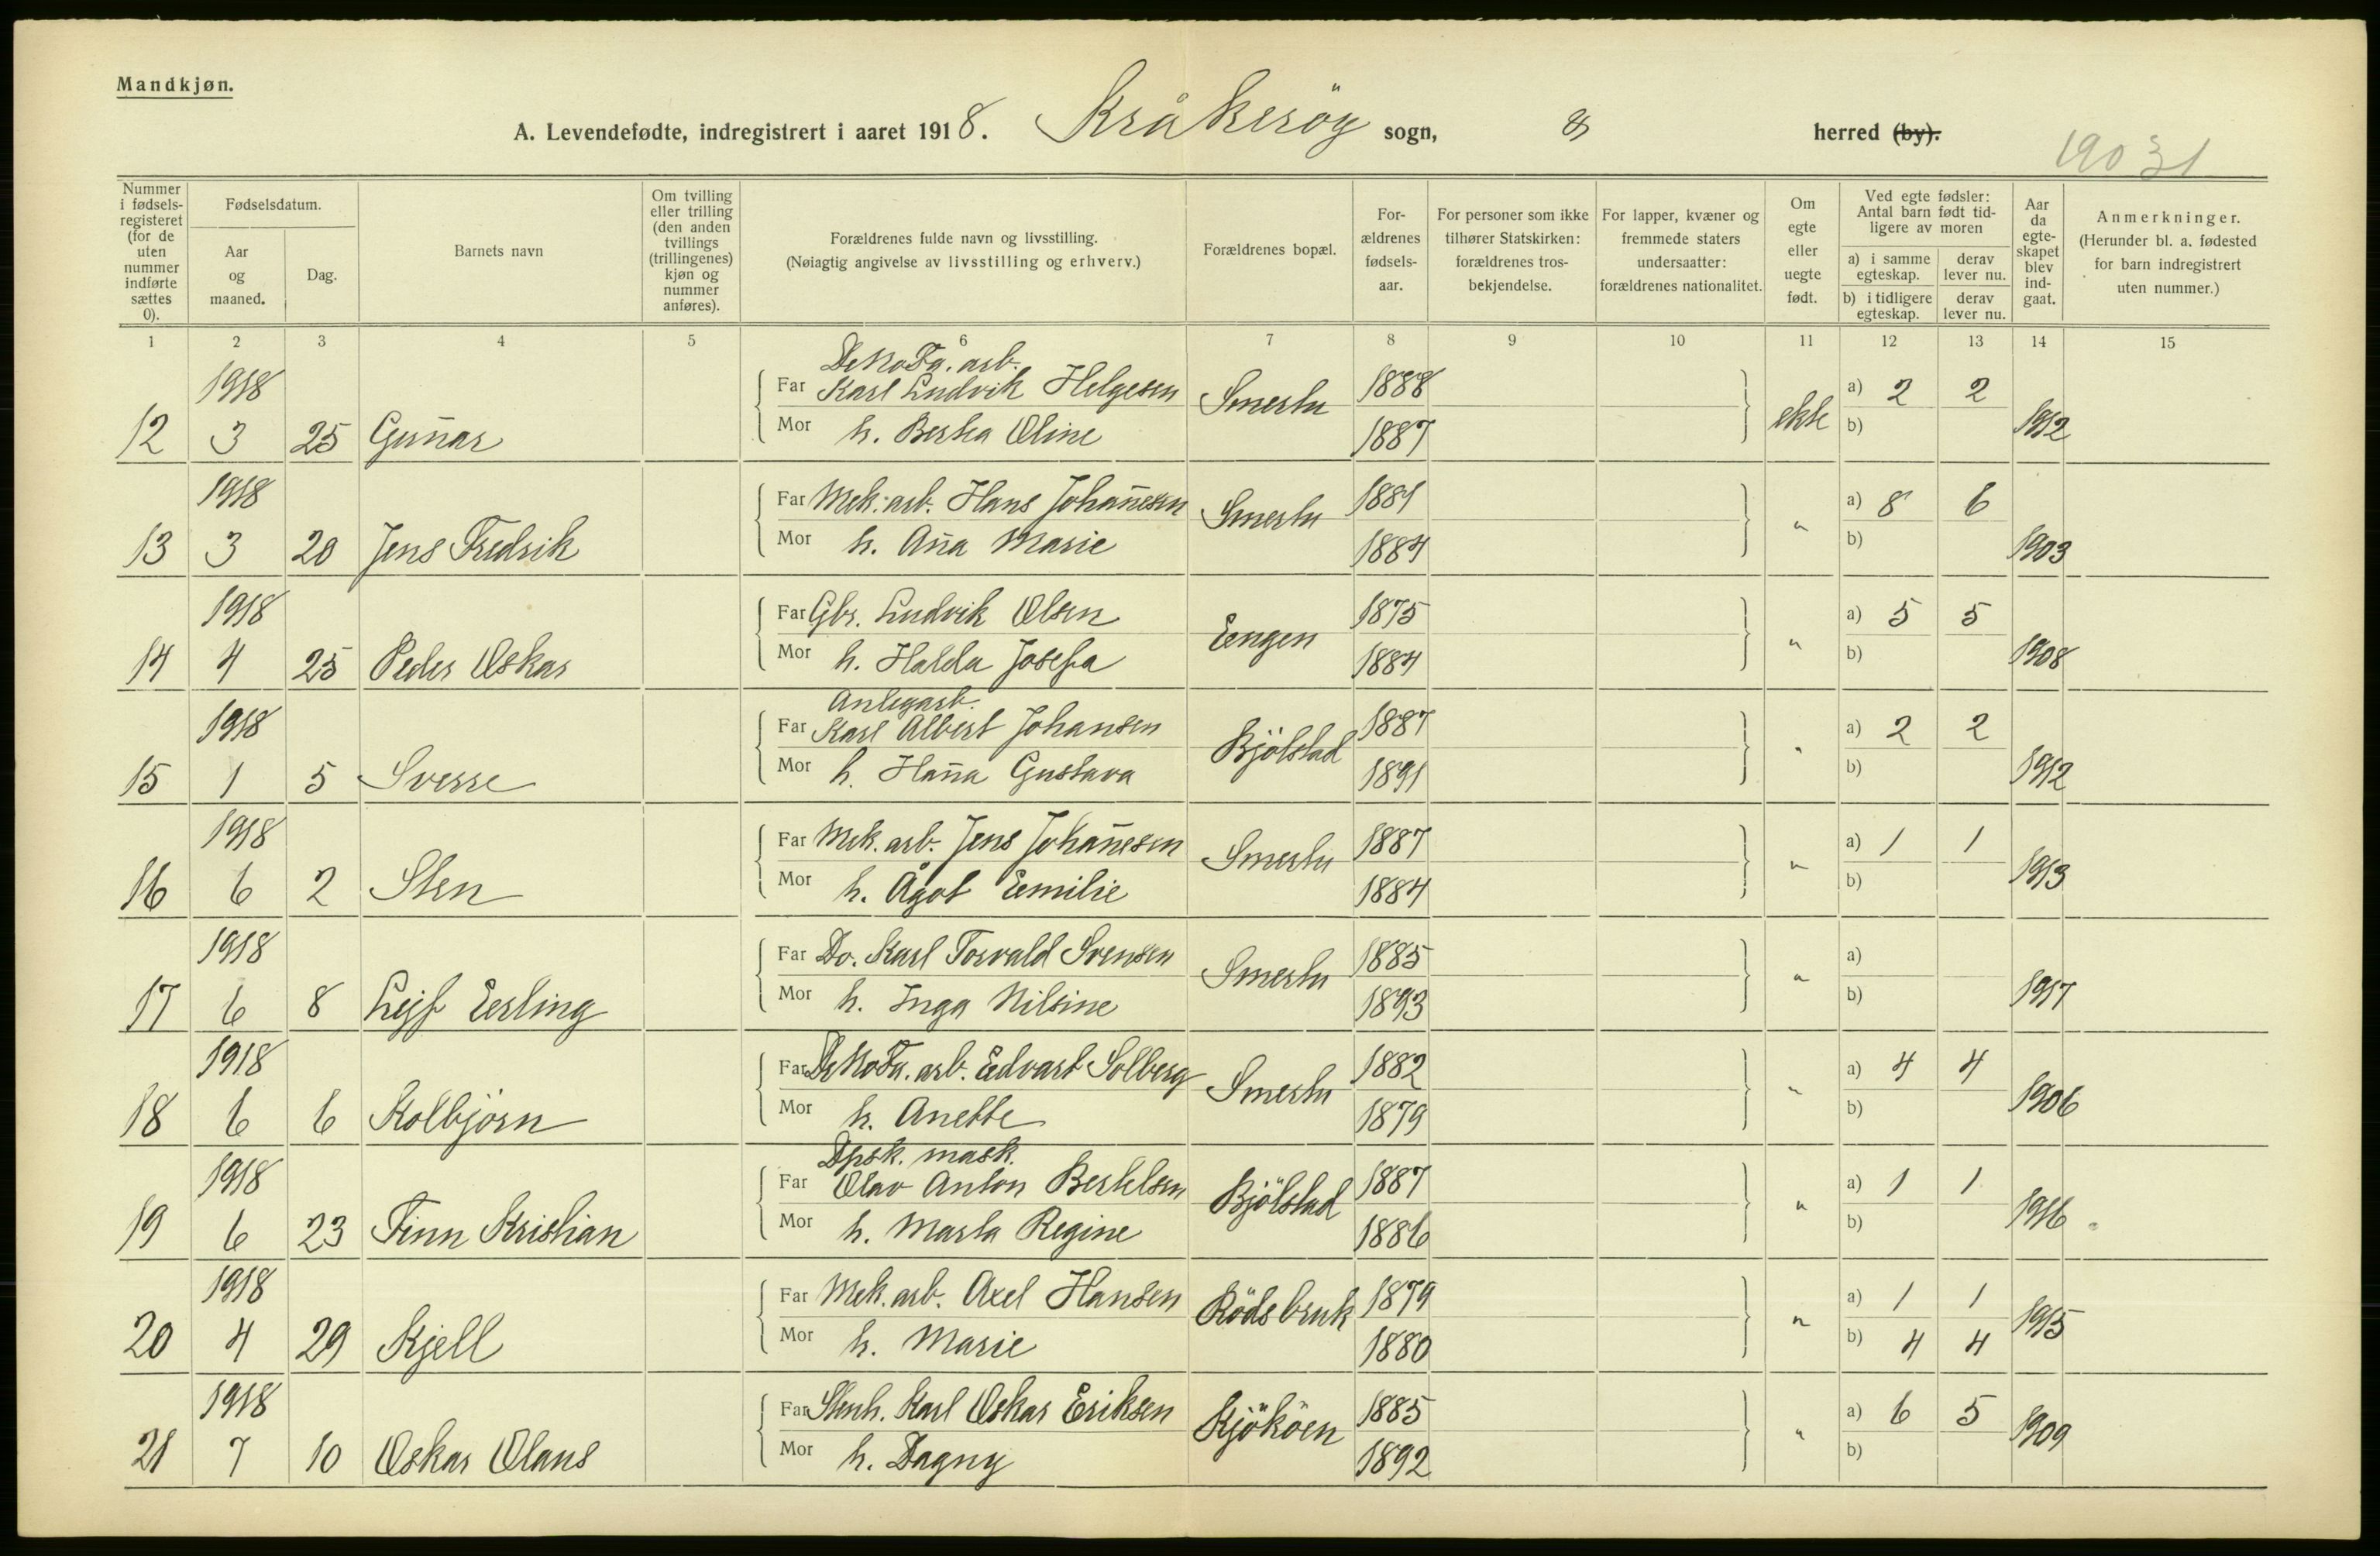 Mandkjøn.
A. Levendefødte, indregistrert i aaret 1918. Kråkeröy sogn, herred (by).
19031
Nummer i fødsels-registeret (for de uten nummer indførte sættes 0).
Fødselsdatum.
Aar og maaned.
Dag.
Barnets navn
Om tvilling eller trilling (den anden tvillings (trillingenes) kjøn og nummer anføres).
Forældrenes fulde navn og livsstilling.
(Nøiagtig angivelse av livsstilling og erhverv.)
Forældrenes bopæl.
For-ældrenes fødsels-aar.
For personer som ikke tilhører Statskirken: forældrenes tros-bekjendelse.
For lapper, kvæner og fremmede staters undersaatter: forældrenes nationalitet.
Om egte eller uegte født.
Ved egte fødsler: Antal barn født tid-ligere av moren
a) i samme egteskap.
derav lever nu.
b) i tidligere egteskap.
derav lever nu.
Aar da egte-skapet blev ind-gaat.
Anmerkninger.
(Herunder bl. a. fødested for barn indregistrert uten nummer.)
1 2 3 4 5 6 7 8 9 10 11 12 13 14 15
DeNoFa. arb.
1918 Far Karl Ludvik Helgesen Smertu 1888 a) 2 2
12 3 25 Guñar Mor h. Berta Oline 1887 ekte b) 1912
1918 Far Mek. arb. Hans Johañesen Smertu 1881 a) 8 6
13 3 20 Jens Fredrik Mor h. Aña Marie 1884 " b) 1903
1918 Far Gbr. Ludvik Olsen Eengen 1875 a) 5 5
14 4 25 Peder Oskar Mor h. Halda Josefa 1884 " b) 1908
Anlegarb.
1918 Far Karl Albert Johansen Bjölstad 1887 a) 2 2
15 1 5 Sverre Mor h. Haña Gustava 1891 " b) 1912
1918 Far Mek. arb. Jens Johañesen Smertu 1887 a) 1 1
16 6 2 Sten Mor h. Ågot Eemilie 1884 " b) 1913
1918 Far Do. Karl Torvald Svensen Smertu 1885 a)
17 6 8 Leif Eerling Mor h. Inga Nilsine 1893 " b) 1917
1918 Far DeNoFa. arb. Edvart Solberg Smertu 1882 a) 4 4
18 6 6 Kolbjörn Mor h. Anette 1879 " b) 1906
Dpsk. mask.
1918 Far Olav Anton Bertelsen Bjölstad 1887 a) 1 1
19 6 23 Finn Kristian Mor h. Marta Regine 1886 " b) 1916
1918 Far Mek. arb. Axel Hansen Rödsbruk 1879 a) 1 1
20 4 29 Kjell Mor h. Marie 1880 " b) 4 4 1915
1918 Far Stenh. Karl Oskar Eriksen Kjököen 1885 a) 6 5
21 7 10 Oskar Olaus Mor h. Dagny 1892 " b) 1909